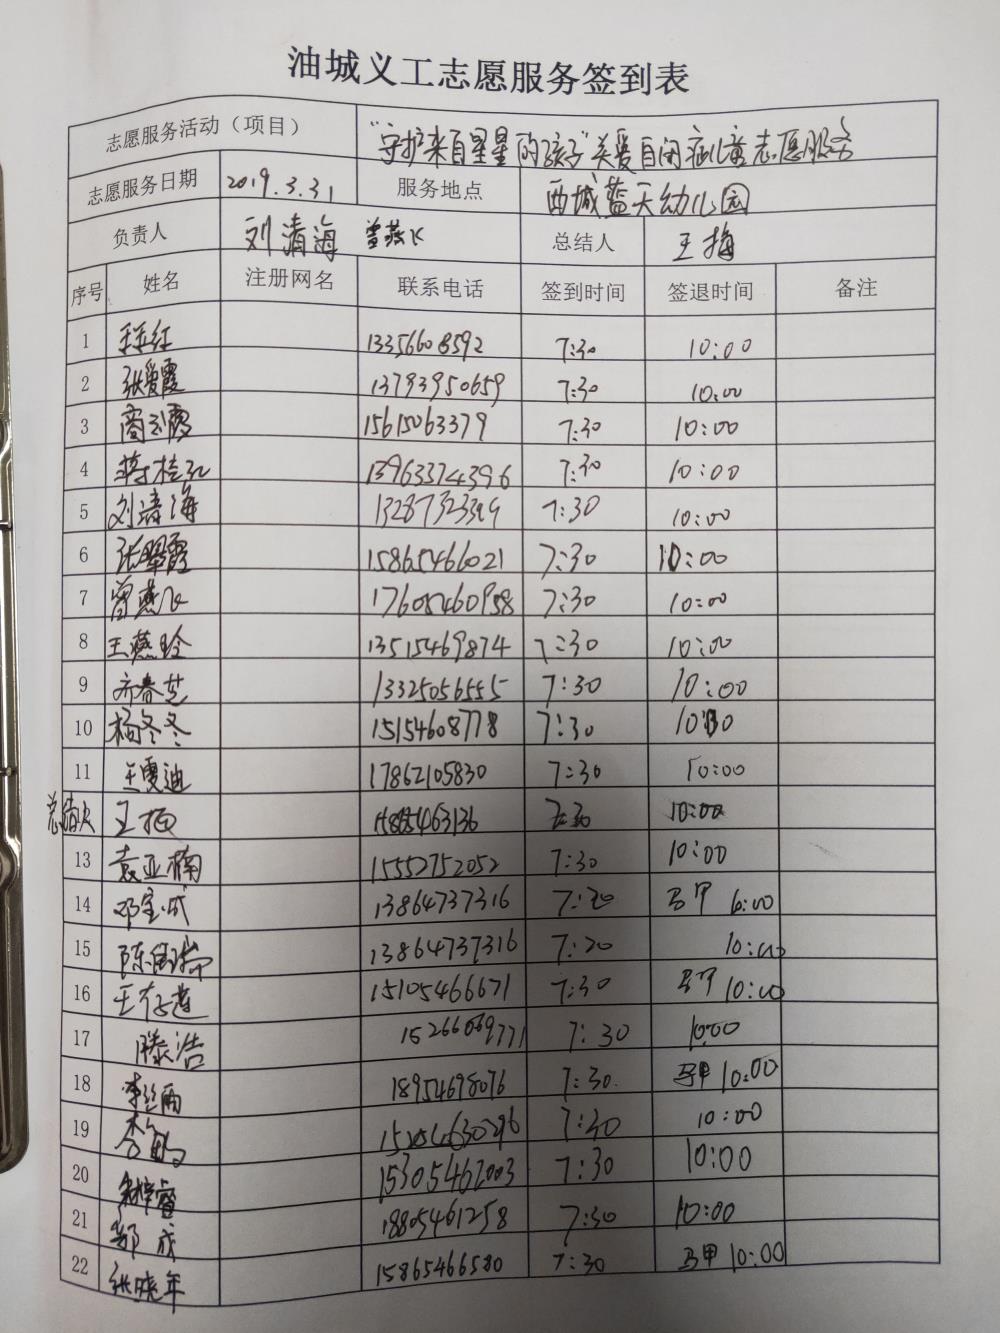 油城义工志愿服务签到表
志愿服务活动（项目） “守护来自星星的孩子”关爱自闭症儿童志愿服务
志愿服务日期 2019.3.31 服务地点 西城蓝天幼儿园
负责人 刘清海 曾燕飞 总结人 王梅
序号 姓名 注册网名 联系电话 签到时间 签退时间 备注
1 13356608592 7:30 10:00
2 张爱霞 13793950659 7:30 10:00
3 15615063379 7:30 10:00
4 蒋桂弘 13963374396 7:30 10:00
5 刘清海 7:30 10:00
6 张翠霞 15865466021 7:30 10:00
7 曾燕飞 17605460958 7:30 10:00
8 王燕玲 13515469874 7:30 10:00
9 齐春芝 13325056555 7:30 10:00
10 杨冬冬 15154608778 7:30
11 王雯迪 17862105830 7:30 10:00
总结人 王梅 7:30 10:00
13 袁亚楠 15552752052 7:30 10:00
14 邓宝成 13864737316 7:20 马甲
15 陈国瑞 13864737316 7:20 10:00
16 王存莲 15105466671 7:30 马甲 10:00
17 滕浩 15266069771 7:30 10:00
18 18954698076 7:30 马甲 10:00
19 7:30 10:00
20 15305462003 7:30 10:00
21 郭成 18805461258 7:30 10:00
22 张晓年 15865466580 7:30 马甲 10:00